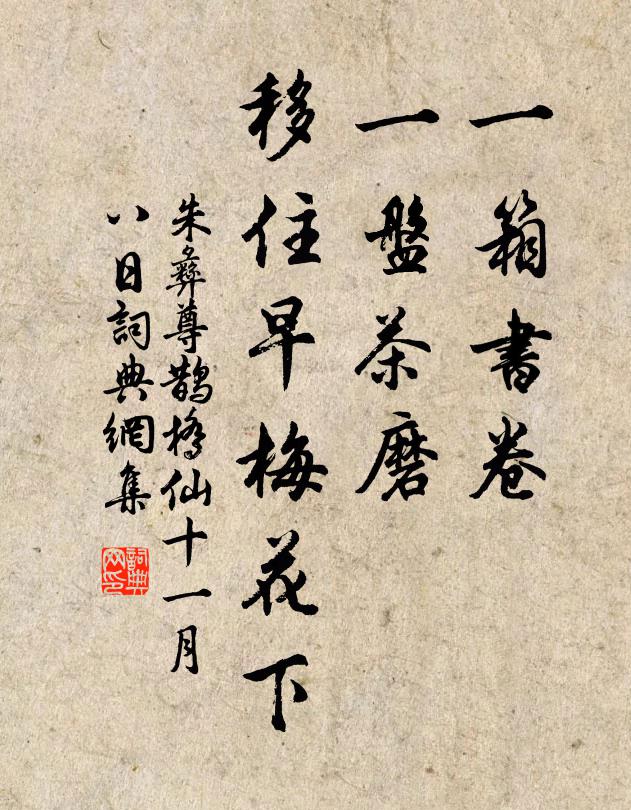 一箱書卷
一盤茶磨
移住早梅花下
朱彝尊鵲橋仙十一月
八日詞典網集
詞典
网印